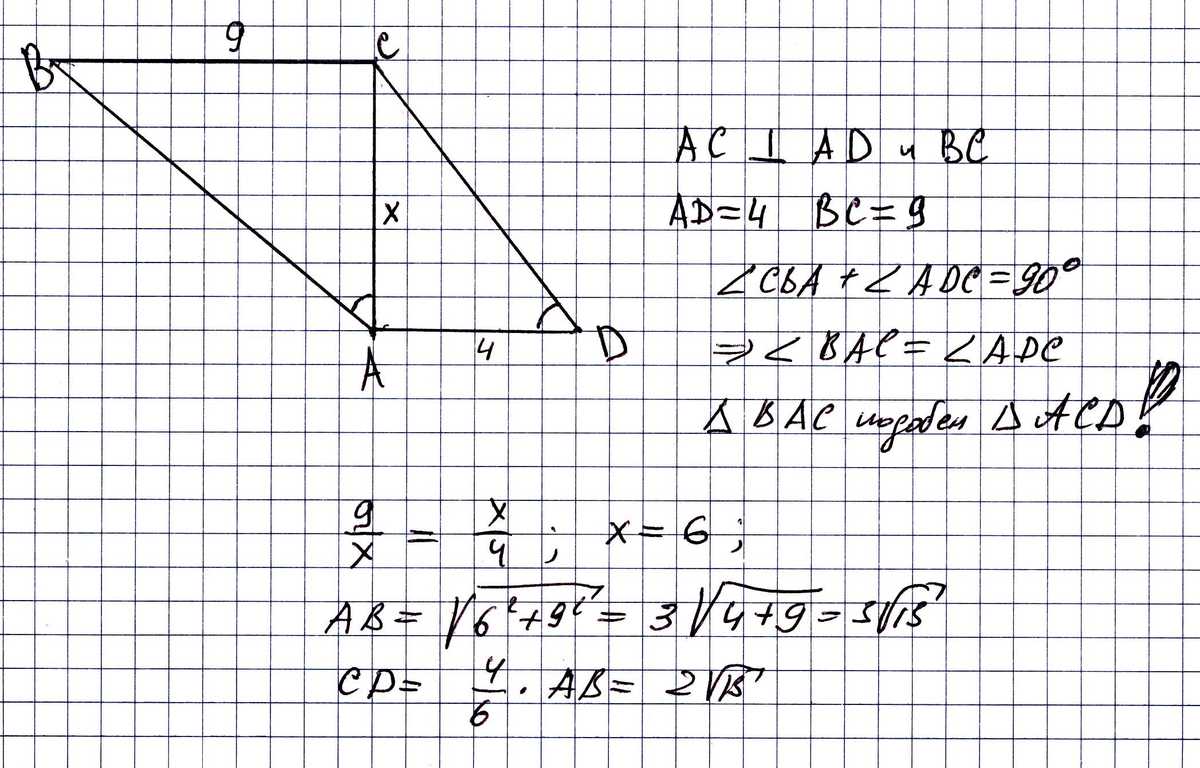 9
B C
AC ⊥ AD и BC
x
AD=4 BC=9
∠CBA + ∠ADC=90°
⇒ ∠BAC = ∠ADC
4
A D
Δ BAC подобен Δ ACD!
9/x = x/4 ; x = 6 ;
AB = √(6²+9²) = 3√(4+9) = 3√13
CD = 4/6 · AB = 2√13